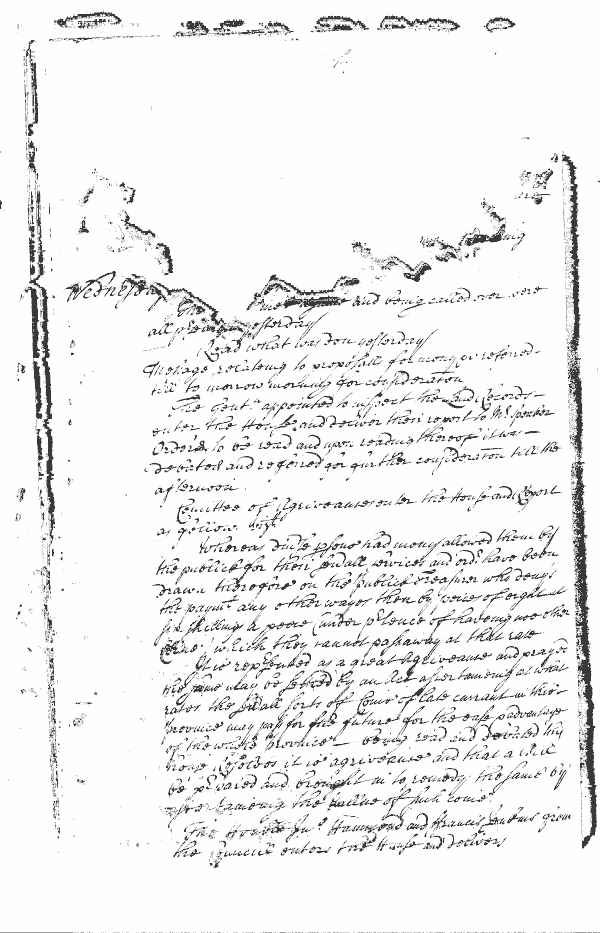 Wednesday
The house mett againe and being called over were
all p'sent as yesterday
Read what was don yesterday
Message relateing to proposall for money &c referred
till to morrow morning for consideratōn
The Gent. appointed to inspect the Land Records
enter the House and deliver their report to Mr Speaker
Ordered to be read and upon reading thereof it was
debated and referred for further consideratōn till the
afternoon
Comittee of Agrieveances enter the House and Report
as follow. vizt.
Whereas divse psons had money allowed them by
the publick for their sevrall services and ordrs have been
drawn therefore on the publick Treasurer who denys
the paymt any other wayes then by peices of eight at
six shilling a peece (under p'tence of haveing noe other
Coine) which they cannot pass away at that rate
It is rep'sented as a great Agrieveance and prayed
the same may be settled by an Act ascertaineing at what
rates the sevall sorts of Coine of late currant in this
Province may pass for the future for the ease & advantage
of the whole Province — being read and debated this
house Resolves it is agrieveance and that a bill
be p'pared and brought in to remedy the same by
ascertaineing the vallue of such coine.
The Honble Jno Hammond and Francis Jenkins from
the Councill enters the House and delivers